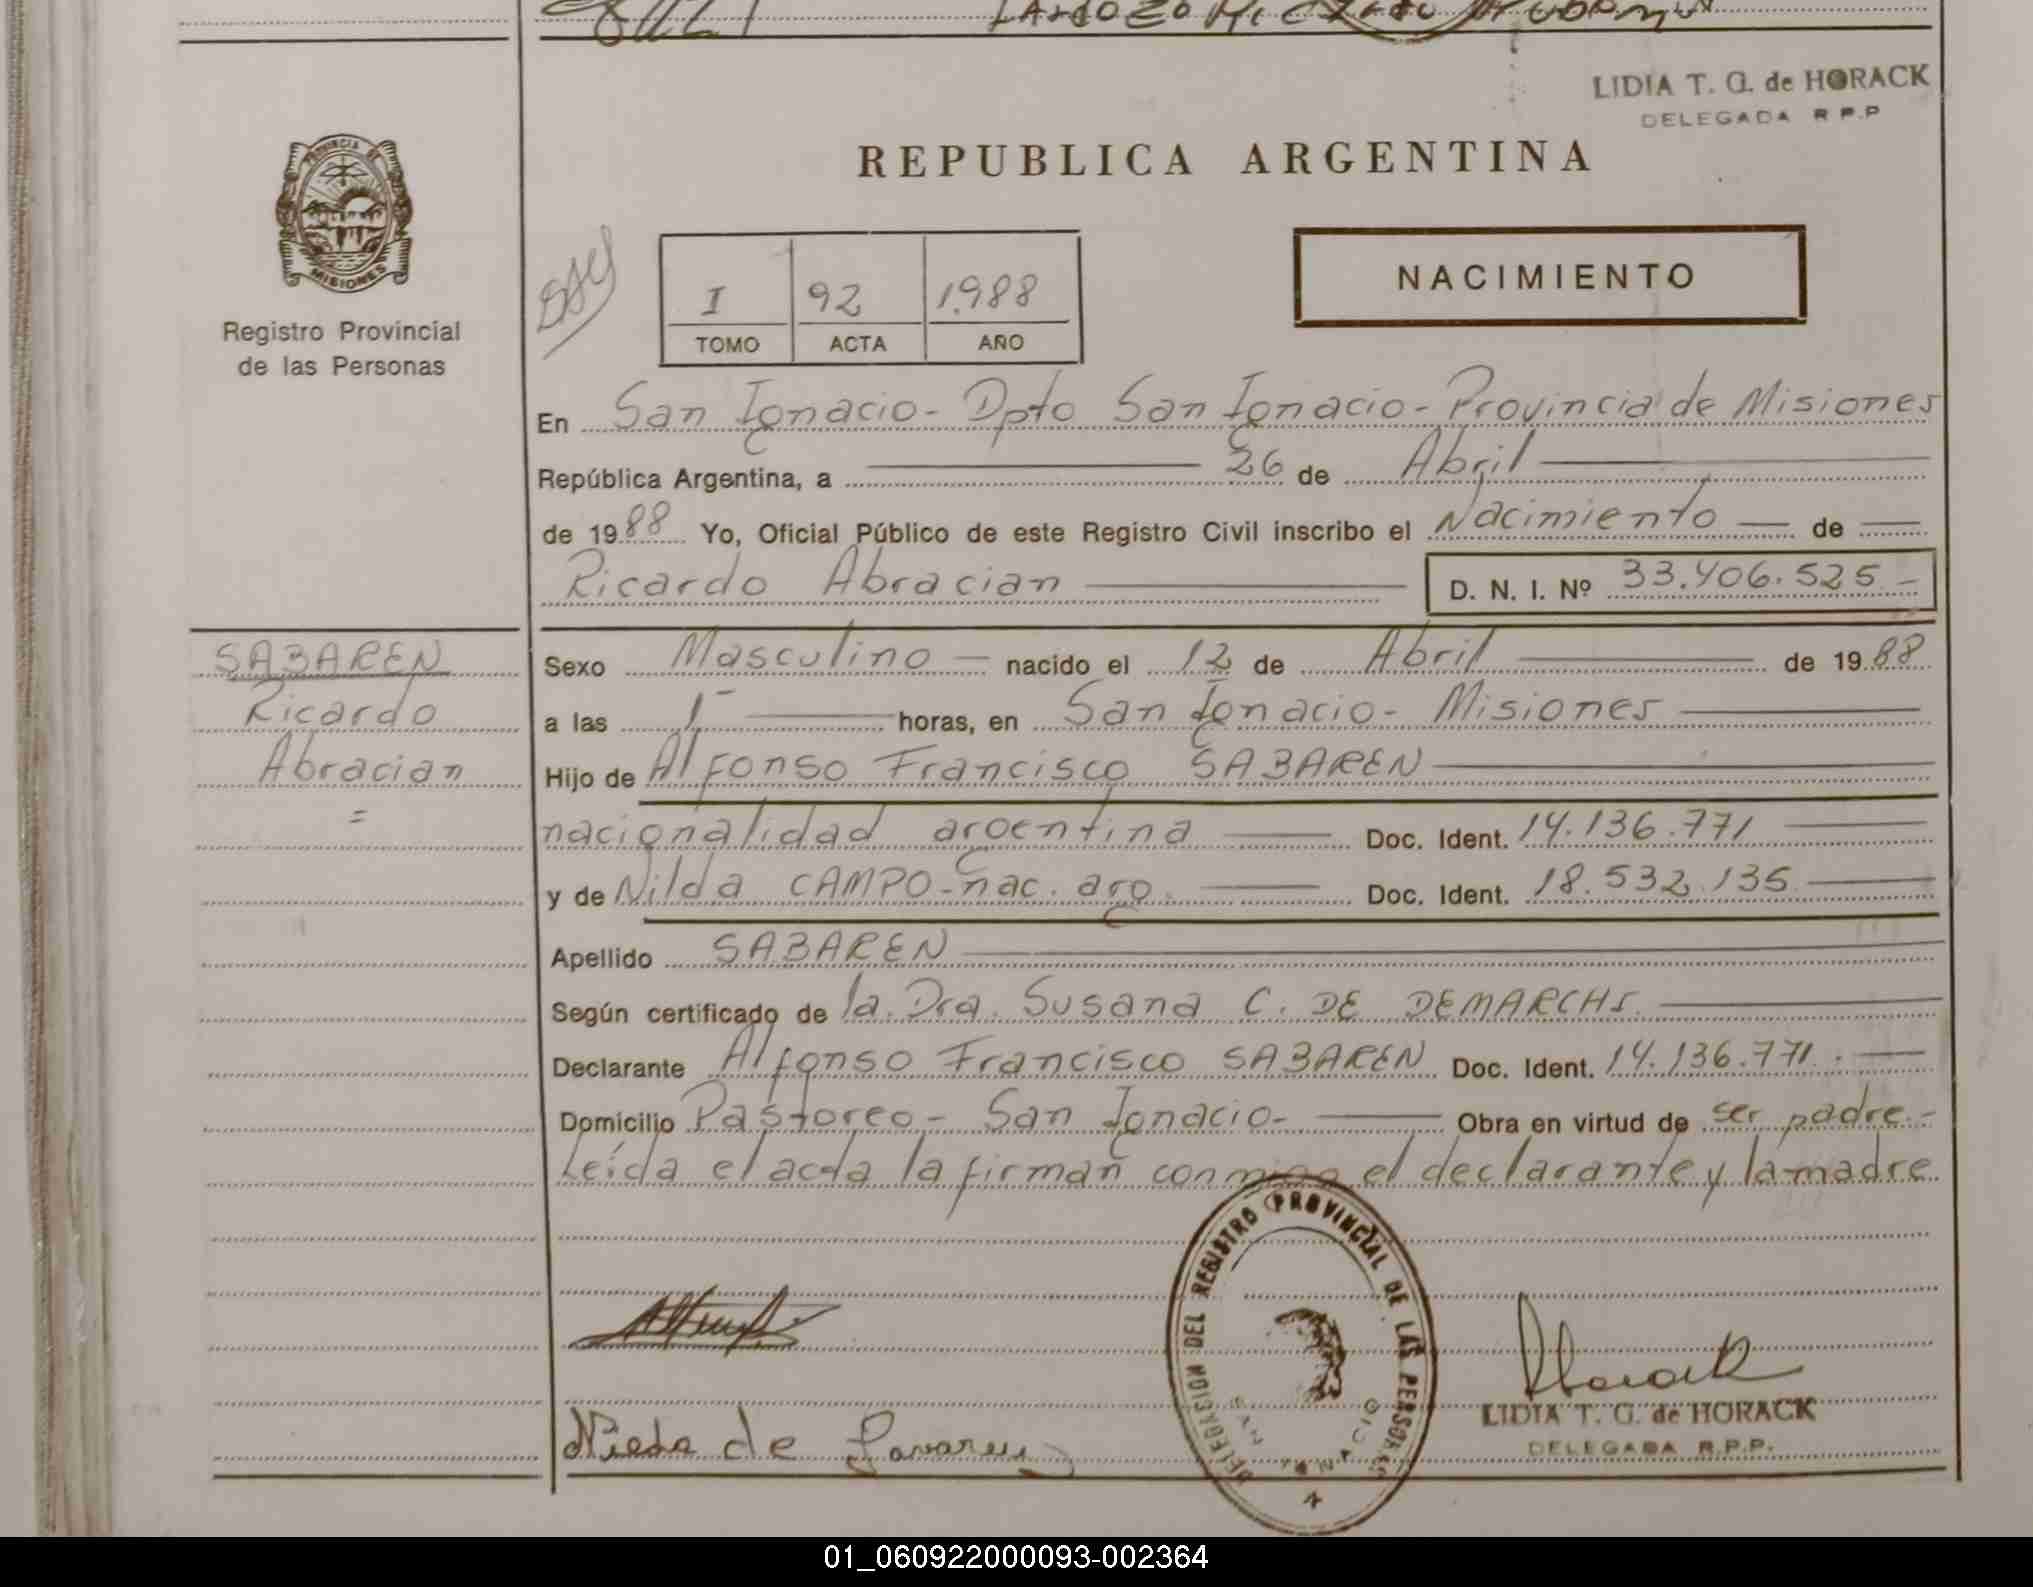 LIDIA T. G. de HORACK
DELEGADA R.P.P
PROVINCIA DE
MISIONES
Registro Provincial
de las Personas
REPUBLICA ARGENTINA
I 92 1.988
TOMO ACTA AÑO
NACIMIENTO
En San Ignacio - Dpto San Ignacio - Provincia de Misiones
República Argentina, a 26 de Abril
de 1988 Yo, Oficial Público de este Registro Civil inscribo el Nacimiento de
Ricardo Abracian D. N. I. Nº 33.406.525 -
SABAREN
Ricardo
Abracian
=
Sexo Masculino nacido el 12 de Abril de 1988
a las 1 horas, en San Ignacio - Misiones
Hijo de Alfonso Francisco SABAREN
nacionalidad argentina Doc. Ident. 14.136.771
y de Nilda CAMPO - nac. arg. Doc. Ident. 18.532.135
Apellido SABAREN
Según certificado de la Dra. Susana C. DE DEMARCHI
Declarante Alfonso Francisco SABAREN Doc. Ident. 14.136.771.
Domicilio Pastoreo - San Ignacio - Obra en virtud de ser padre. -
Leída el acta la firman conmigo el declarante y la madre
DELEGACION DEL REGISTRO PROVINCIAL DE LAS PERSONAS
SAN IGNACIO
Horack
LIDIA T. G. de HORACK
DELEGADA R.P.P.
01_060922000093-002364